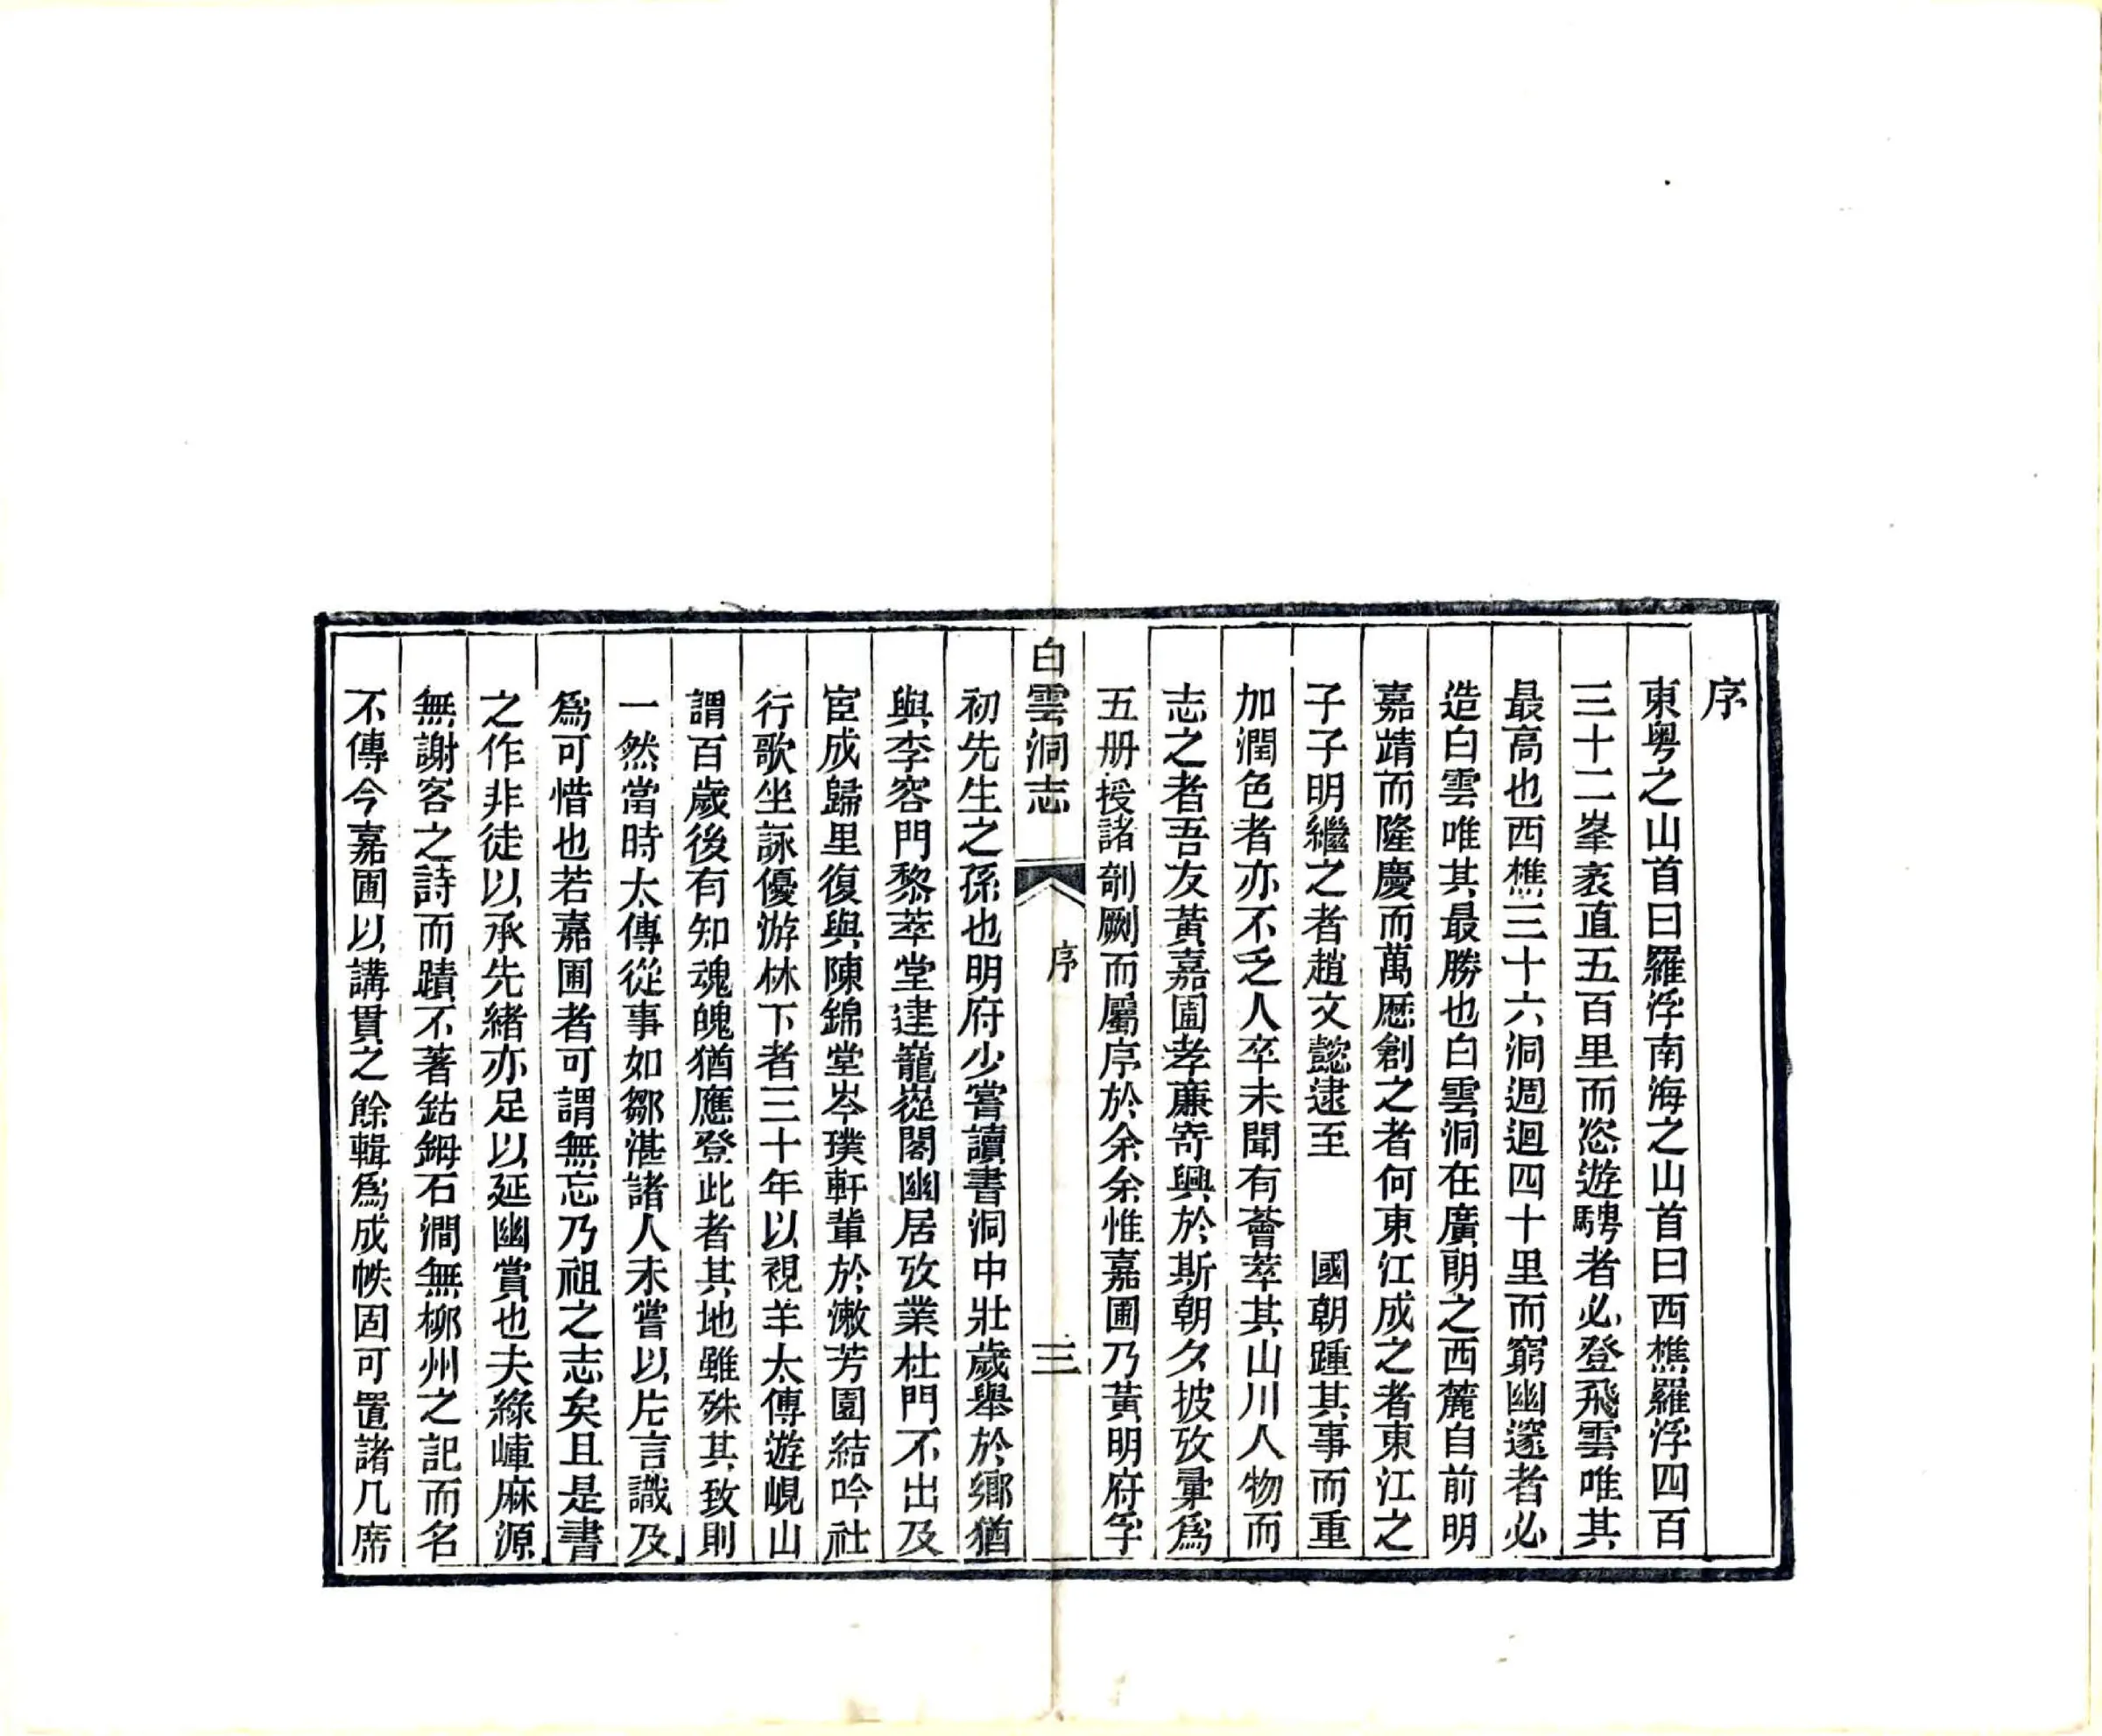 序
東粤之山首曰羅浮南海之山首曰西樵羅浮四百
三十二峯袤直五百里而恣遊騁者必登飛雲唯其
最高也西樵三十六洞週迴四十里而窮幽邃者必
造白雲唯其最勝也白雲洞在廣朗之西麓自前明
嘉靖而隆慶而萬歷創之者何東江成之者東江之
子子明繼之者趙文懿逮至　國朝踵其事而重
加潤色者亦不乏人卒未聞有薈萃其山川人物而
志之者吾友黃嘉圃孝廉寄興於斯朝夕披攷彙爲
五册授諸剞劂而屬序於余余惟嘉圃乃黃明府孚
白雲洞志
序
三
初先生之孫也明府少嘗讀書洞中壯歲舉於鄉猶
與李容門黎萃堂建巃嵸閣幽居攷業杜門不出及
宦成歸里復與陳錦堂岑璞軒輩於漱芳園結吟社
行歌坐詠優游林下者三十年以視羊太傅遊峴山
謂百歲後有知魂魄猶應登此者其地雖殊其致則
一然當時太傅從事如鄒湛諸人未嘗以片言識及
爲可惜也若嘉圃者可謂無忘乃祖之志矣且是書
之作非徒以承先緒亦足以延幽賞也夫綠嶂麻源
無謝客之詩而蹟不著鈷鉧石澗無柳州之記而名
不傳今嘉圃以講貫之餘輯爲成帙固可置諸几席